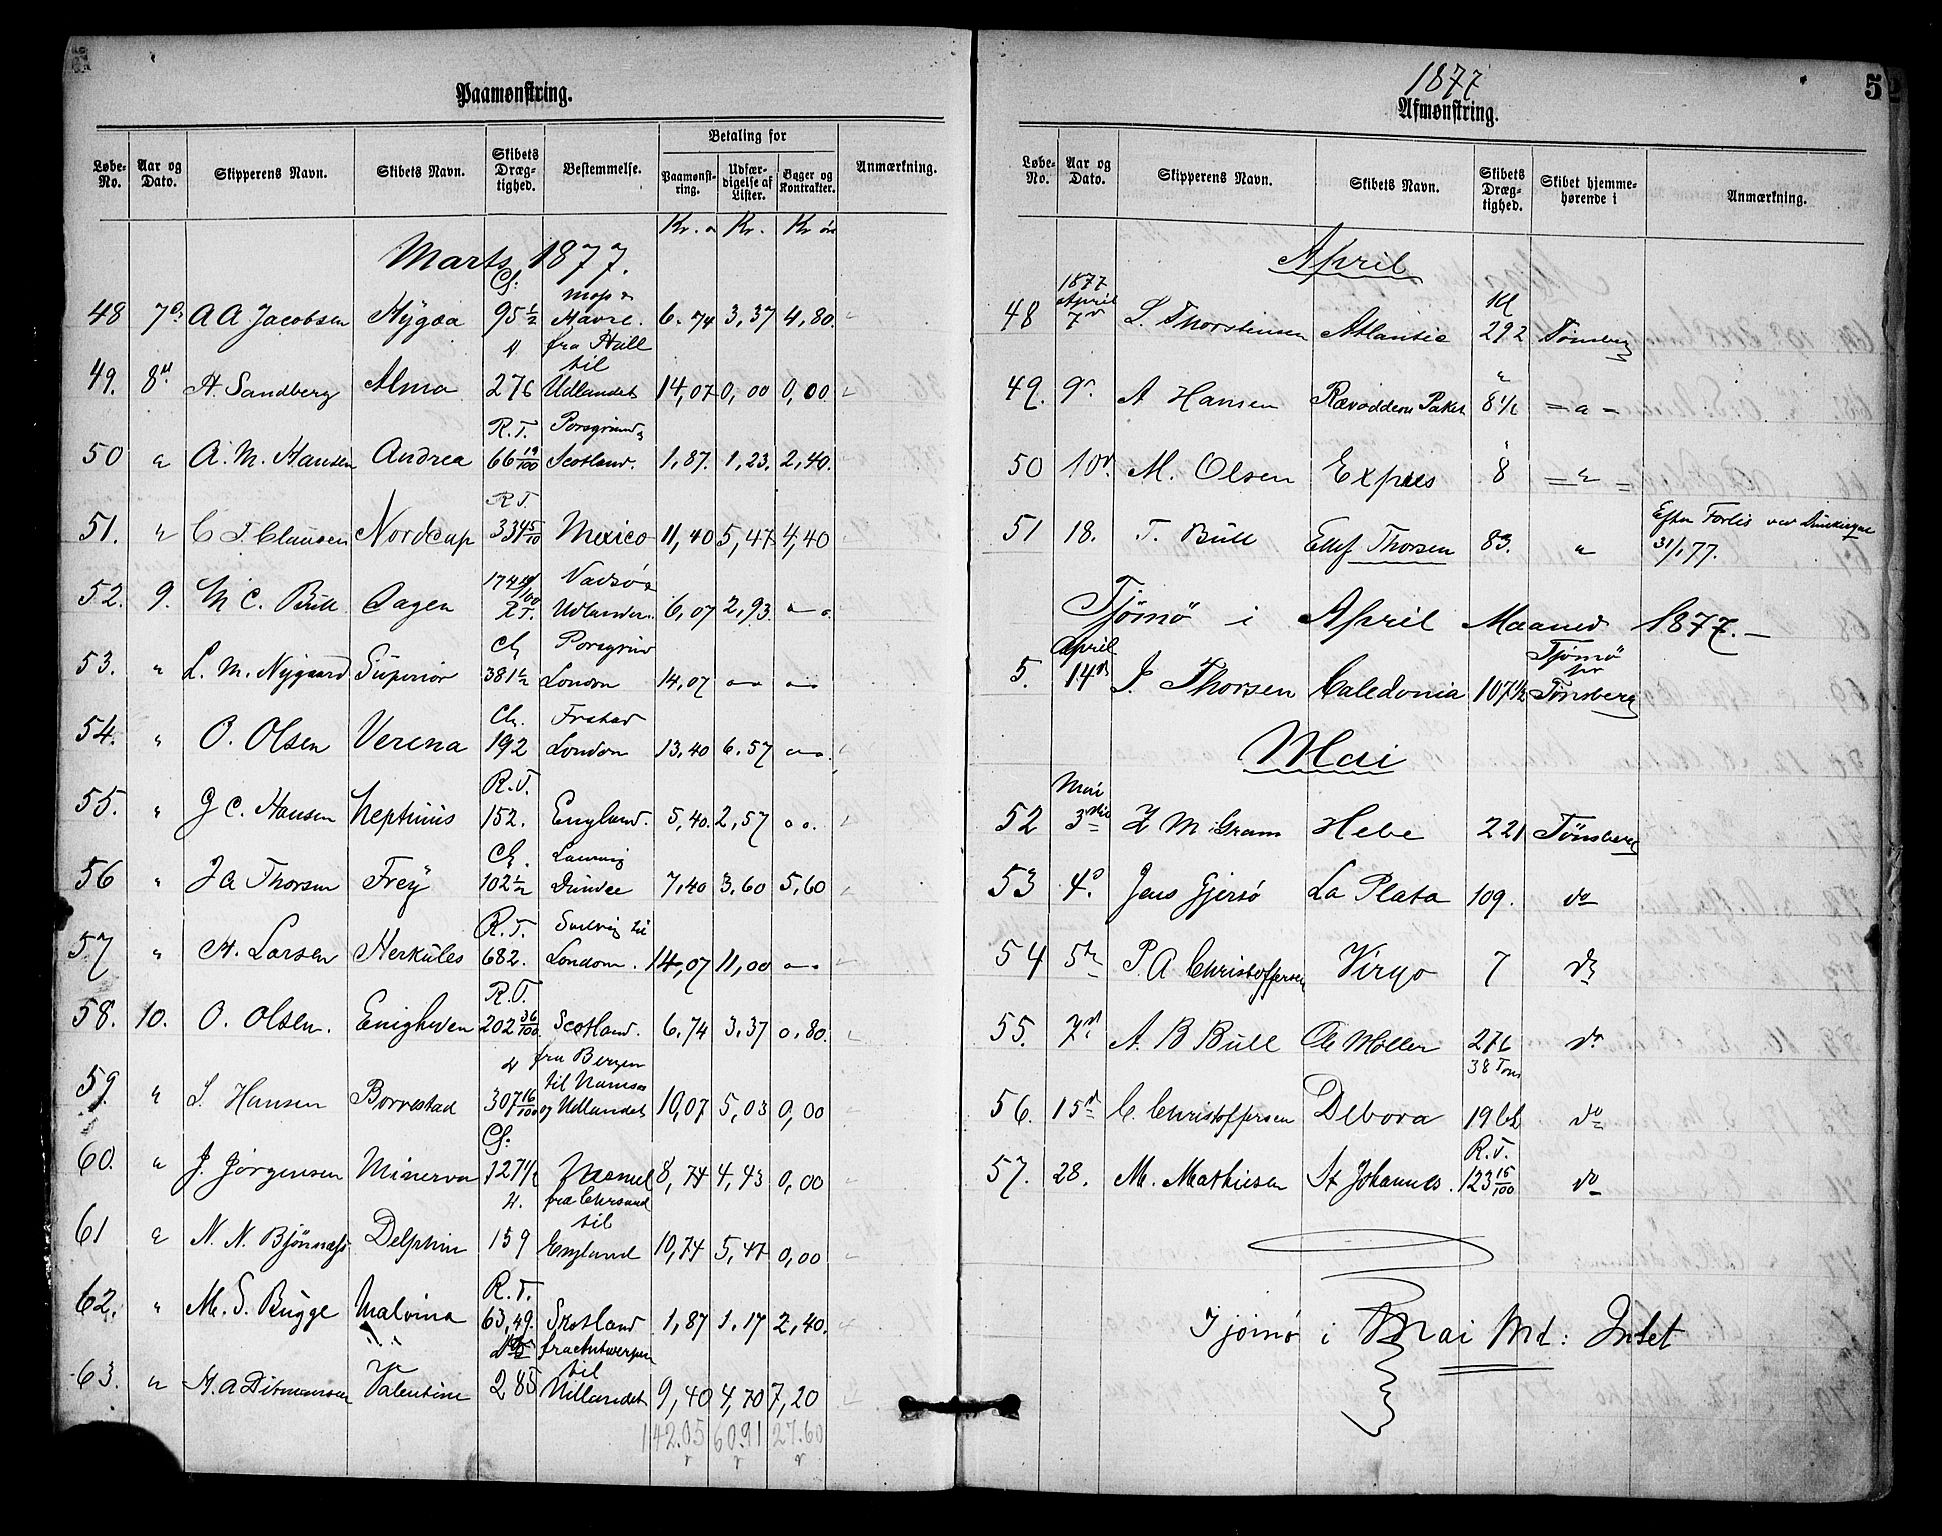 Paamønstring.
Betaling for
Løbe-No. Aar og Dato. Skipperens Navn. Skibets Navn. Skibets Dræg-tighed. Bestemmelse. Paamønst-ring. Udfær-digelse af Lister. Bøger og Kontrakter. Anmærkning.
Kr. ø Kr. Kr øre
Marts 1877.
Cl:
48 7d A A Jacobsen Hygæa 95 1/2 Havre. 6.74 3,37 4,80.
fra Hull til
49. 8d A. Sandberg Alma 276 Udlandet 14,07 0,00 0,00
R.T. Porsgrund
50 " A. M. Hansen Andrea 66 19/100 Scotland. 1,87. 1,23. 2,40.
R.T.
51. " C T. Clausen Nordcap 334 Mexico 11,40 5,47 4,40
174 Vadsø
52. 9. M C. Bull Dagen R.T. Udlandet. 6,07 2,93. " ".
Cl Porsgrund
53. " L. M. Nygaard Superior 381 1/2 London 14,07 " " " "
Cl. Frstad
54. " O. Olsen Verena 192 London 13,40 6.57 " "
R.T.
55. " G C. Hansen Neptunus 152. England. 5,40. 2,57 " ".
Cl. Laurvig
56 " J A Thorsen Frey 102 1/2 Dundee 7,40 3.60 5,60
R.T. til
57 " H. Larsen Herkules 682. London. 14,07 11,00 " "
R.T.
58. 10. O. Olsen. Enigheden 202 36/100 Scotland. 6.74 3.37 0,80.
fra Bergen til Namsos
59. " L. Hansen Borrestad 307 16/100 og Udlandet 10,07 5,03 0,00
Cl:
60. " J. Jörgensen Minerva 127 1/2 8,74 4,43 0,00
fra Chrsand til
61 " N. N. Bjönness Delphin 159 England 10,74 5,47 0,00
R.T.
62. " M. S. Bugge Malvina 63,49. Skotland 1,87 1.17 2,40.
fra Antwerpen til
63. " H. A Ditmansen Valentine 285 Udlandet 9,40 4,70 7,20
142.05 60.91 27.60
1877
5
Afmønstring.
Løbe-No. Aar og Dato. Skipperens Navn. Skibets Navn. Skibets Dræg-tighed. Skibet hjemme-hørende i Anmærkning.
April
1877 April
48 7d L. Thorstensen Atlantic 292 Tönsberg
49. 9d A Hansen Rævoddens Paket 8 1/2 — " —
50 10d M. Olsen Expres 8 — " —
51 18. T. Bull Ellef Thorsen 83. " Efter Forlis ved Dünkirque 31/1 77.
Tjømö i April Maaned 1877.—
April Tjømö pr
5. 14d J. Thorsen Caledonia 107 1/2 Tönsberg
Mai
Mai
52 3die Z M Gram Hebe 221 Tönsberg
53 4d. Jens Gjersö La Plata 109. do
54 5te P. A Christoffersen Virgo 7 do
55. 7d A. B Bull Ole Möller 276 do
38 Tons
56. 15d C. Christoffersen Debora 19 Cl. do
R.T.
57. 28. M. Mathiesen St Johannes. 123 15/100 do
Tjömö i Mai Md: Intet